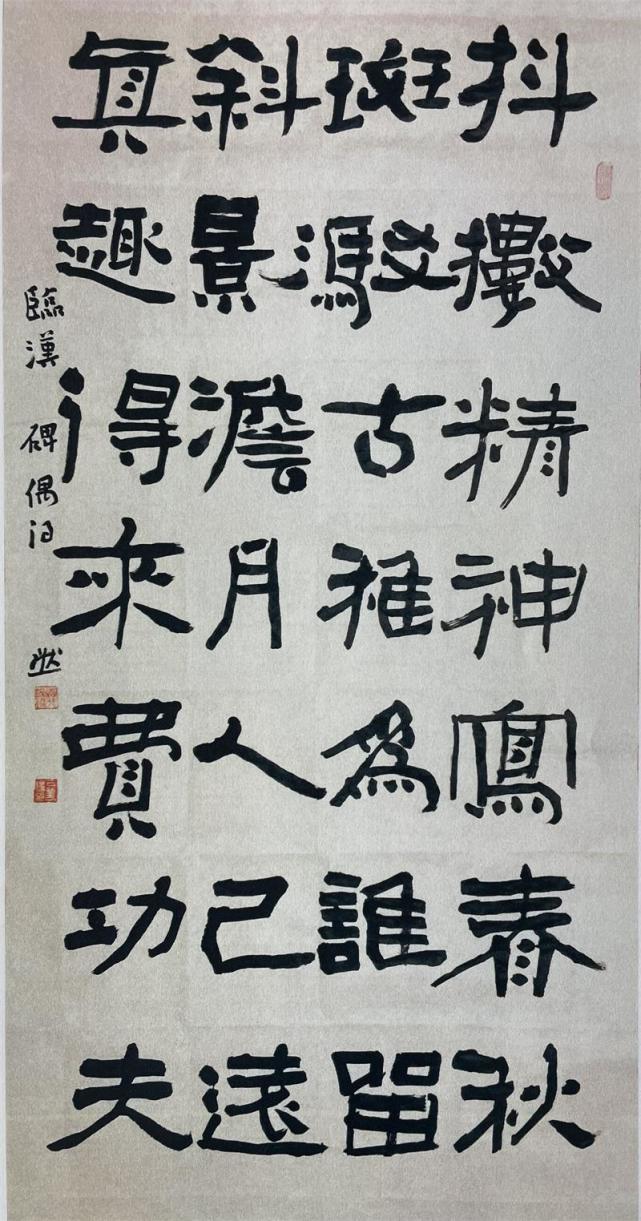 抖擻精神寫春秋
斑駁古雅為誰留
斜景澹月人已遠
真趣得來費功夫
臨漢碑偶得